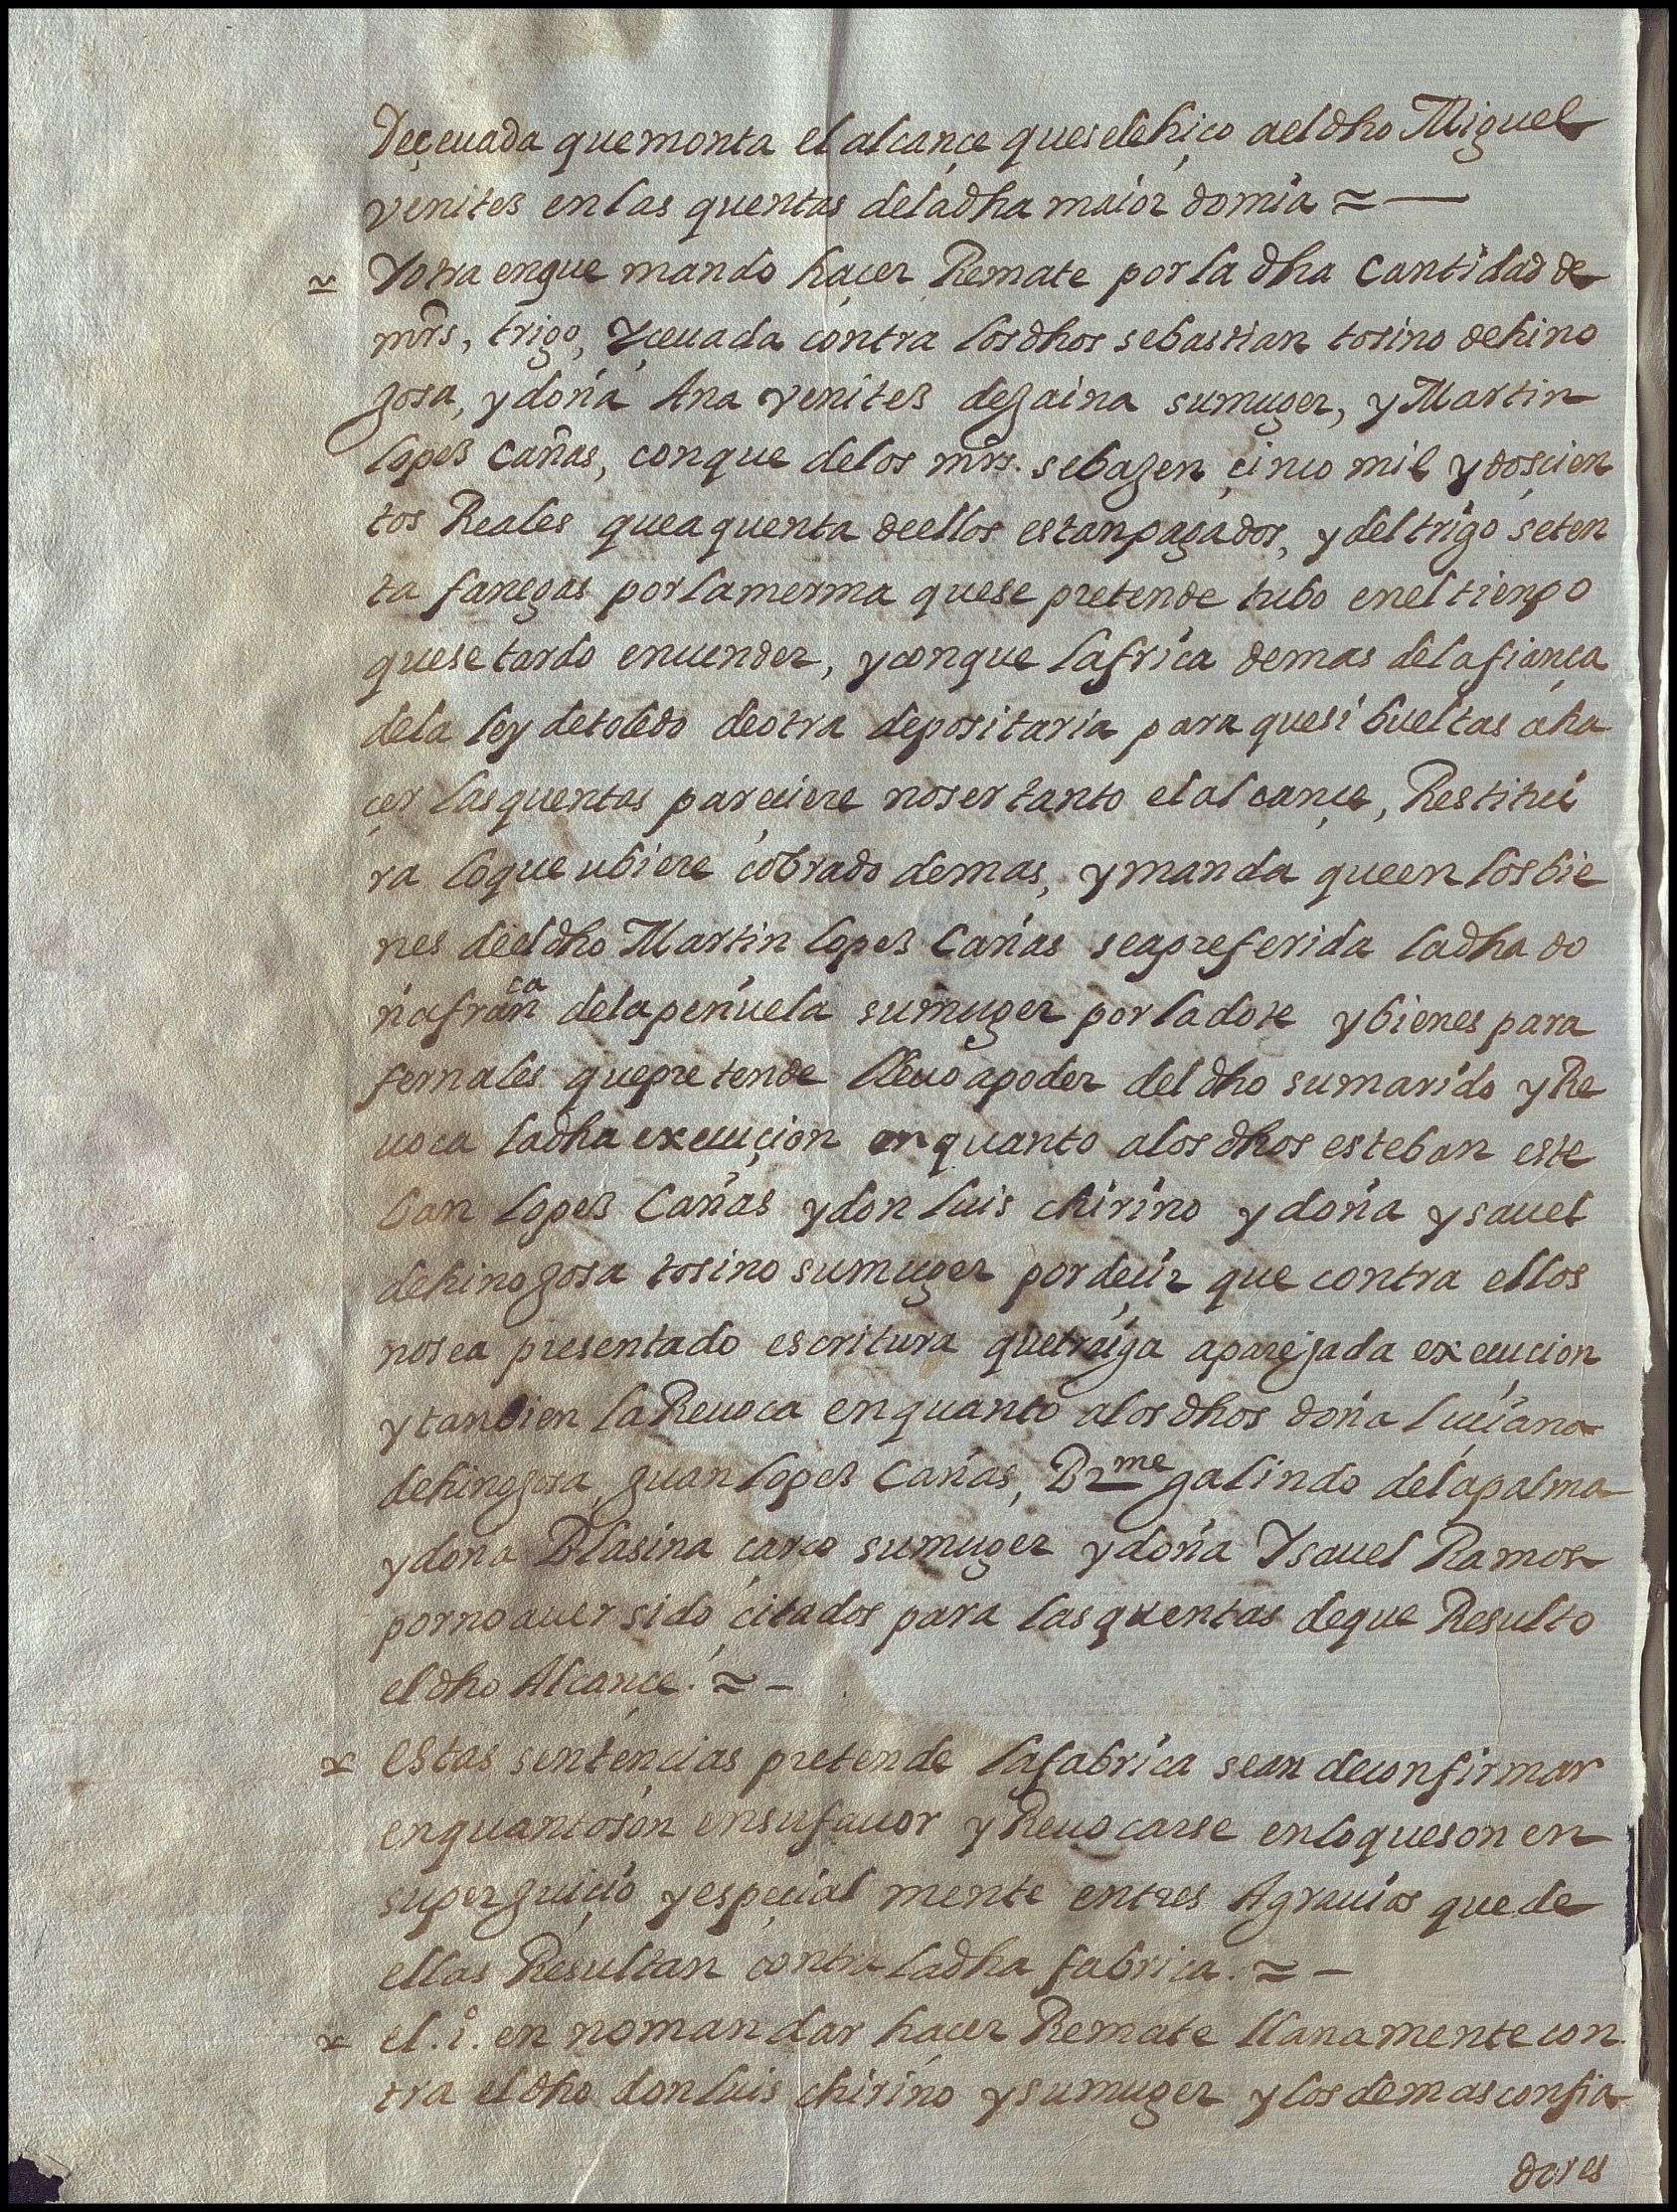 Deçeuada que monta el alcançe queselehiço aeldho Miguel
venites en las quentas deladha maior domia ≈ —
≈ Yotra enque mando haçer Remate por la dha Cantidad de
mrs, trigo, Yçeuada contra losdhos sebastian tosino dehino
josa, y doña Ana venites dezaina sumuger, y Martin
lopes Cañas, conque delos mrs. sebagen çinco mil y dosçien
tos Reales quea quenta deellos estan pagados, y del trigo seten
ta fanegas por la merma quese pretende tubo enel tienpo
quese tardo enuender, y conque lafrica demas dela fiança
dela ley detoledo deotra depositaria para quesi bueltas aha
çer las quentas pareçiere noser tanto el alcançe, Restitui
ra loque ubiere cobrado demas, y manda queen los bie
nes deeldho Martin lopes Cañas sea preferida ladha do
ña franca delapeñuela sumuger por la dote y bienes para
fernales que pretende lleuo apoder del dho sumarido y Re
uoca ladha execuçion en quanto alos dhos esteban este
ban lopes Cañas y don luis chirino y doña ysauel
dehinojosa tosino sumuger por deçir que contra ellos
nosea presentado escritura quetraiga aparejada execucion
y tanbien la Reuoca enquanto alos dhos doña luçiana
dehinojosa, juan lopes Cañas, Brme galindo delapalma
y doña Blasina çarco sumuger y doña Ysauel Ramos
por no auer sido citados para las quentas deque Resulto
el dho Alcançe. ≈ —
x estas sentençias pretende lafabrica sean deconfirmar
enquantoson ensufauor y Reuocarse enloqueson en
superjuiçio y espeçial mente entres Agrauios que de
ellas Resultan contra ladha fabrica. ≈ —
x el. i. en nomandar haçer Remate llanamente con
tra el dho don luis chirino y sumuger y los demas confia
dores